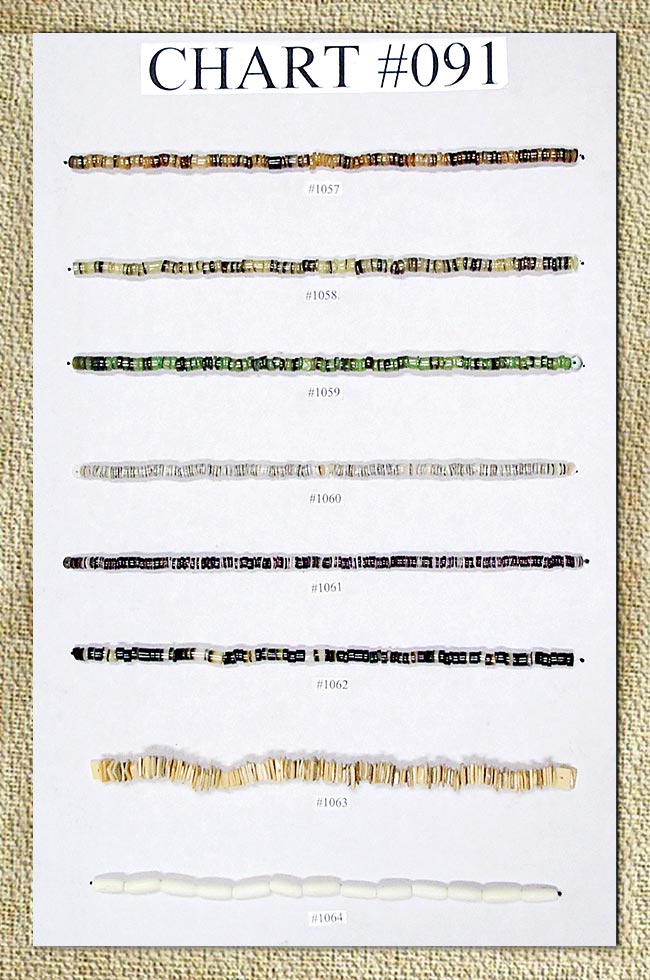 CHART #091
#1057
#1058.
#1059
#1060
#1061
#1062
#1063
#1064